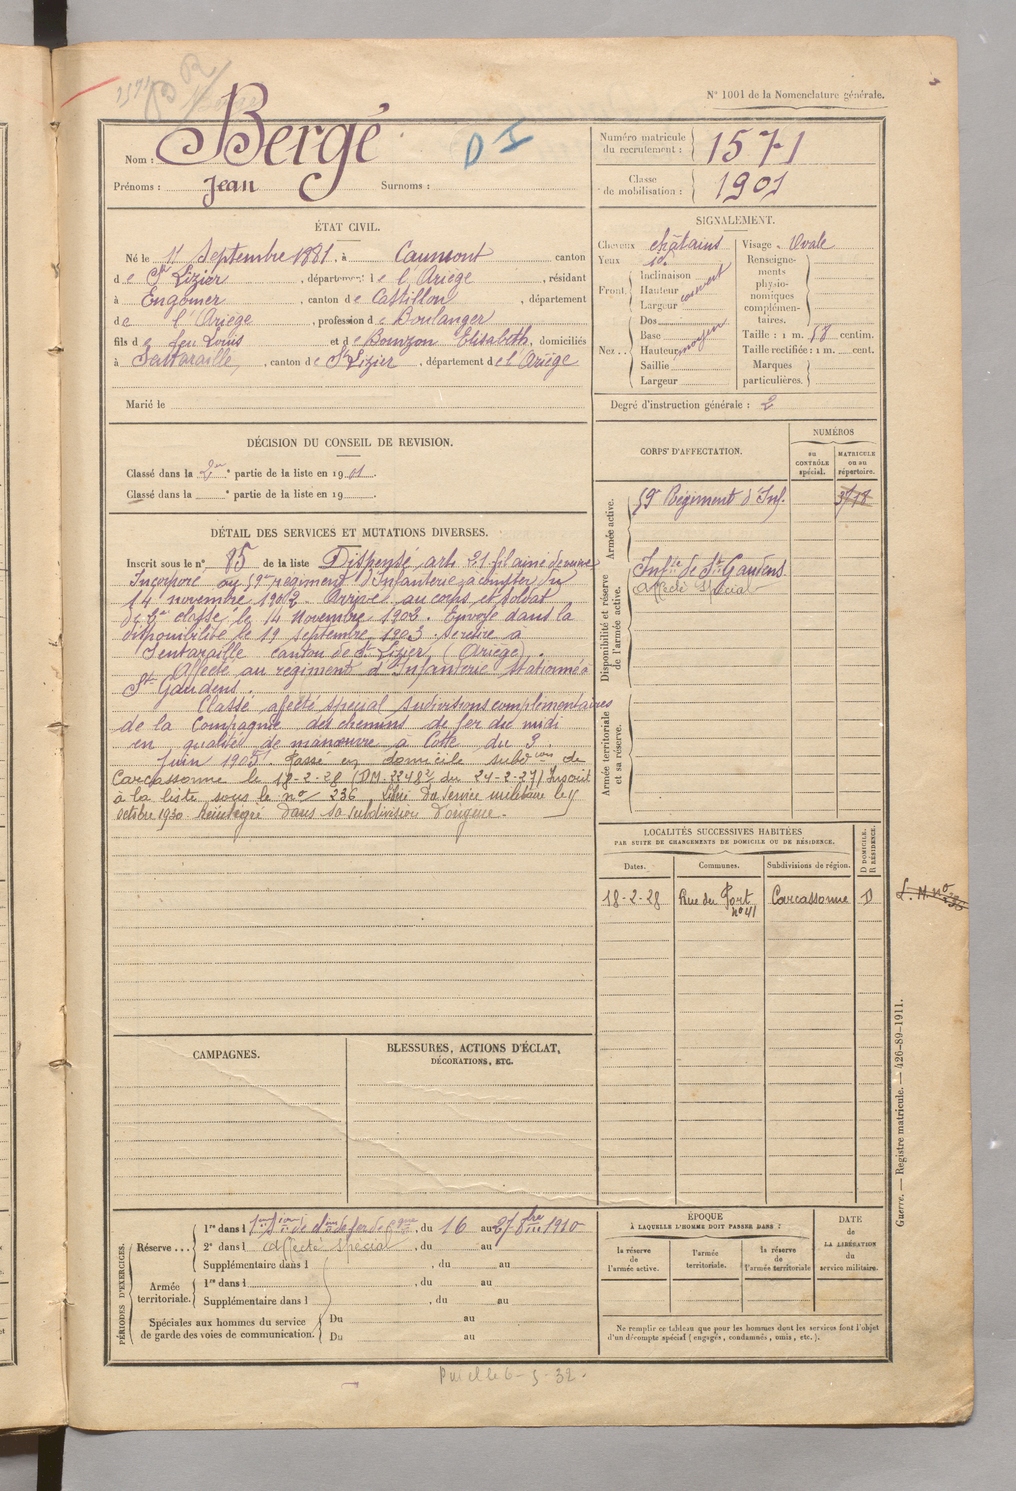 N° 1001 de la Nomenclature générale.
Nom : Bergé
D I
Prénoms : Jean Surnoms :
Numéro matricule du recrutement : 1571
Classe de mobilisation : 1901
ÉTAT CIVIL.
Né le 11 Septembre 1881, à Caumont canton
de St Lizier, département de l'Ariège, résidant
à Engomer, canton de Castillon, département
de l'Ariège, profession de Boulanger
fils de feu Louis et de Bouzon Elisabeth, domiciliés
à Sentaraille, canton de St Lizier, département de l'Ariège
Marié le
SIGNALEMENT.
Cheveux châtains
Yeux id.
Front. Inclinaison
Hauteur couvert
Largeur
Nez.. Dos
Base
Hauteur moyen
Saillie
Largeur
Visage. Ovale
Renseignements physionomiques complémentaires.
Taille : 1 m. 58 centim.
Taille rectifiée : 1 m. cent.
Marques particulières.
Degré d'instruction générale : 2
DÉCISION DU CONSEIL DE REVISION.
Classé dans la 2e partie de la liste en 1901.
Classé dans la e partie de la liste en 19
CORPS D'AFFECTATION.
NUMÉROS
au CONTRÔLE spécial.
MATRICULE ou au répertoire.
Armée active.
59e Régiment d'Inf. 3718
Disponibilité et réserve de l'armée active.
Infie de St Gaudens
affecté spécial
Armée territoriale et sa réserve.
DÉTAIL DES SERVICES ET MUTATIONS DIVERSES.
Inscrit sous le n° 85 de la liste Dispensé art. 21 fils ainé de veuve
Incorporé au 59e régiment d'Infanterie à compter du
14 novembre 1902. Arrivé au corps et soldat
de 2e classe, le 14 Novembre 1902. Envoyé dans la
disponibilité le 19 septembre 1903 se retire à
Sentaraille canton de St Lizier (Ariège).
Affecté au régiment d'Infanterie stationné à
St Gaudens.
Classé affecté spécial subdivisions complémentaires
de la Compagnie des chemins de fer du midi
en qualités de manœuvre à Cette du 3
Juin 1905. Passé en domicile subdon de
Carcassonne le 18-2-28 (DM. du 24-2-27) Inscrit
à la liste sous le no 236 Libéré du service militaire le 15
octobre 1930 Réintégré dans sa subdivision d'origine.
LOCALITÉS SUCCESSIVES HABITÉES
PAR SUITE DE CHANGEMENTS DE DOMICILE OU DE RÉSIDENCE.
Dates. Communes. Subdivisions de région. D DOMICILE. R RÉSIDENCE.
18-2-28 Rue du Port n° 41 Carcassonne D
L. M. no 236
CAMPAGNES.
BLESSURES, ACTIONS D'ÉCLAT,
DÉCORATIONS, ETC.
PÉRIODES D'EXERCICES.
Réserve... 1re dans l du 16 au 27 8bre 1910
2e dans l affecté spécial, du au
Supplémentaire dans l , du au
Armée territoriale. 1re dans l , du au
Supplémentaire dans l , du au
Spéciales aux hommes du service de garde des voies de communication. Du au
Du au
ÉPOQUE
À LAQUELLE L'HOMME DOIT PASSER DANS :
la réserve de l'armée active.
l'armée territoriale.
la réserve de l'armée territoriale
DATE de LA LIBÉRATION du service militaire.
Ne remplir ce tableau que pour les hommes dont les services font l'objet
d'un décompte spécial (engagés, condamnés, omis, etc.).
Guerre. — Registre matricule. — 426-89-1911.